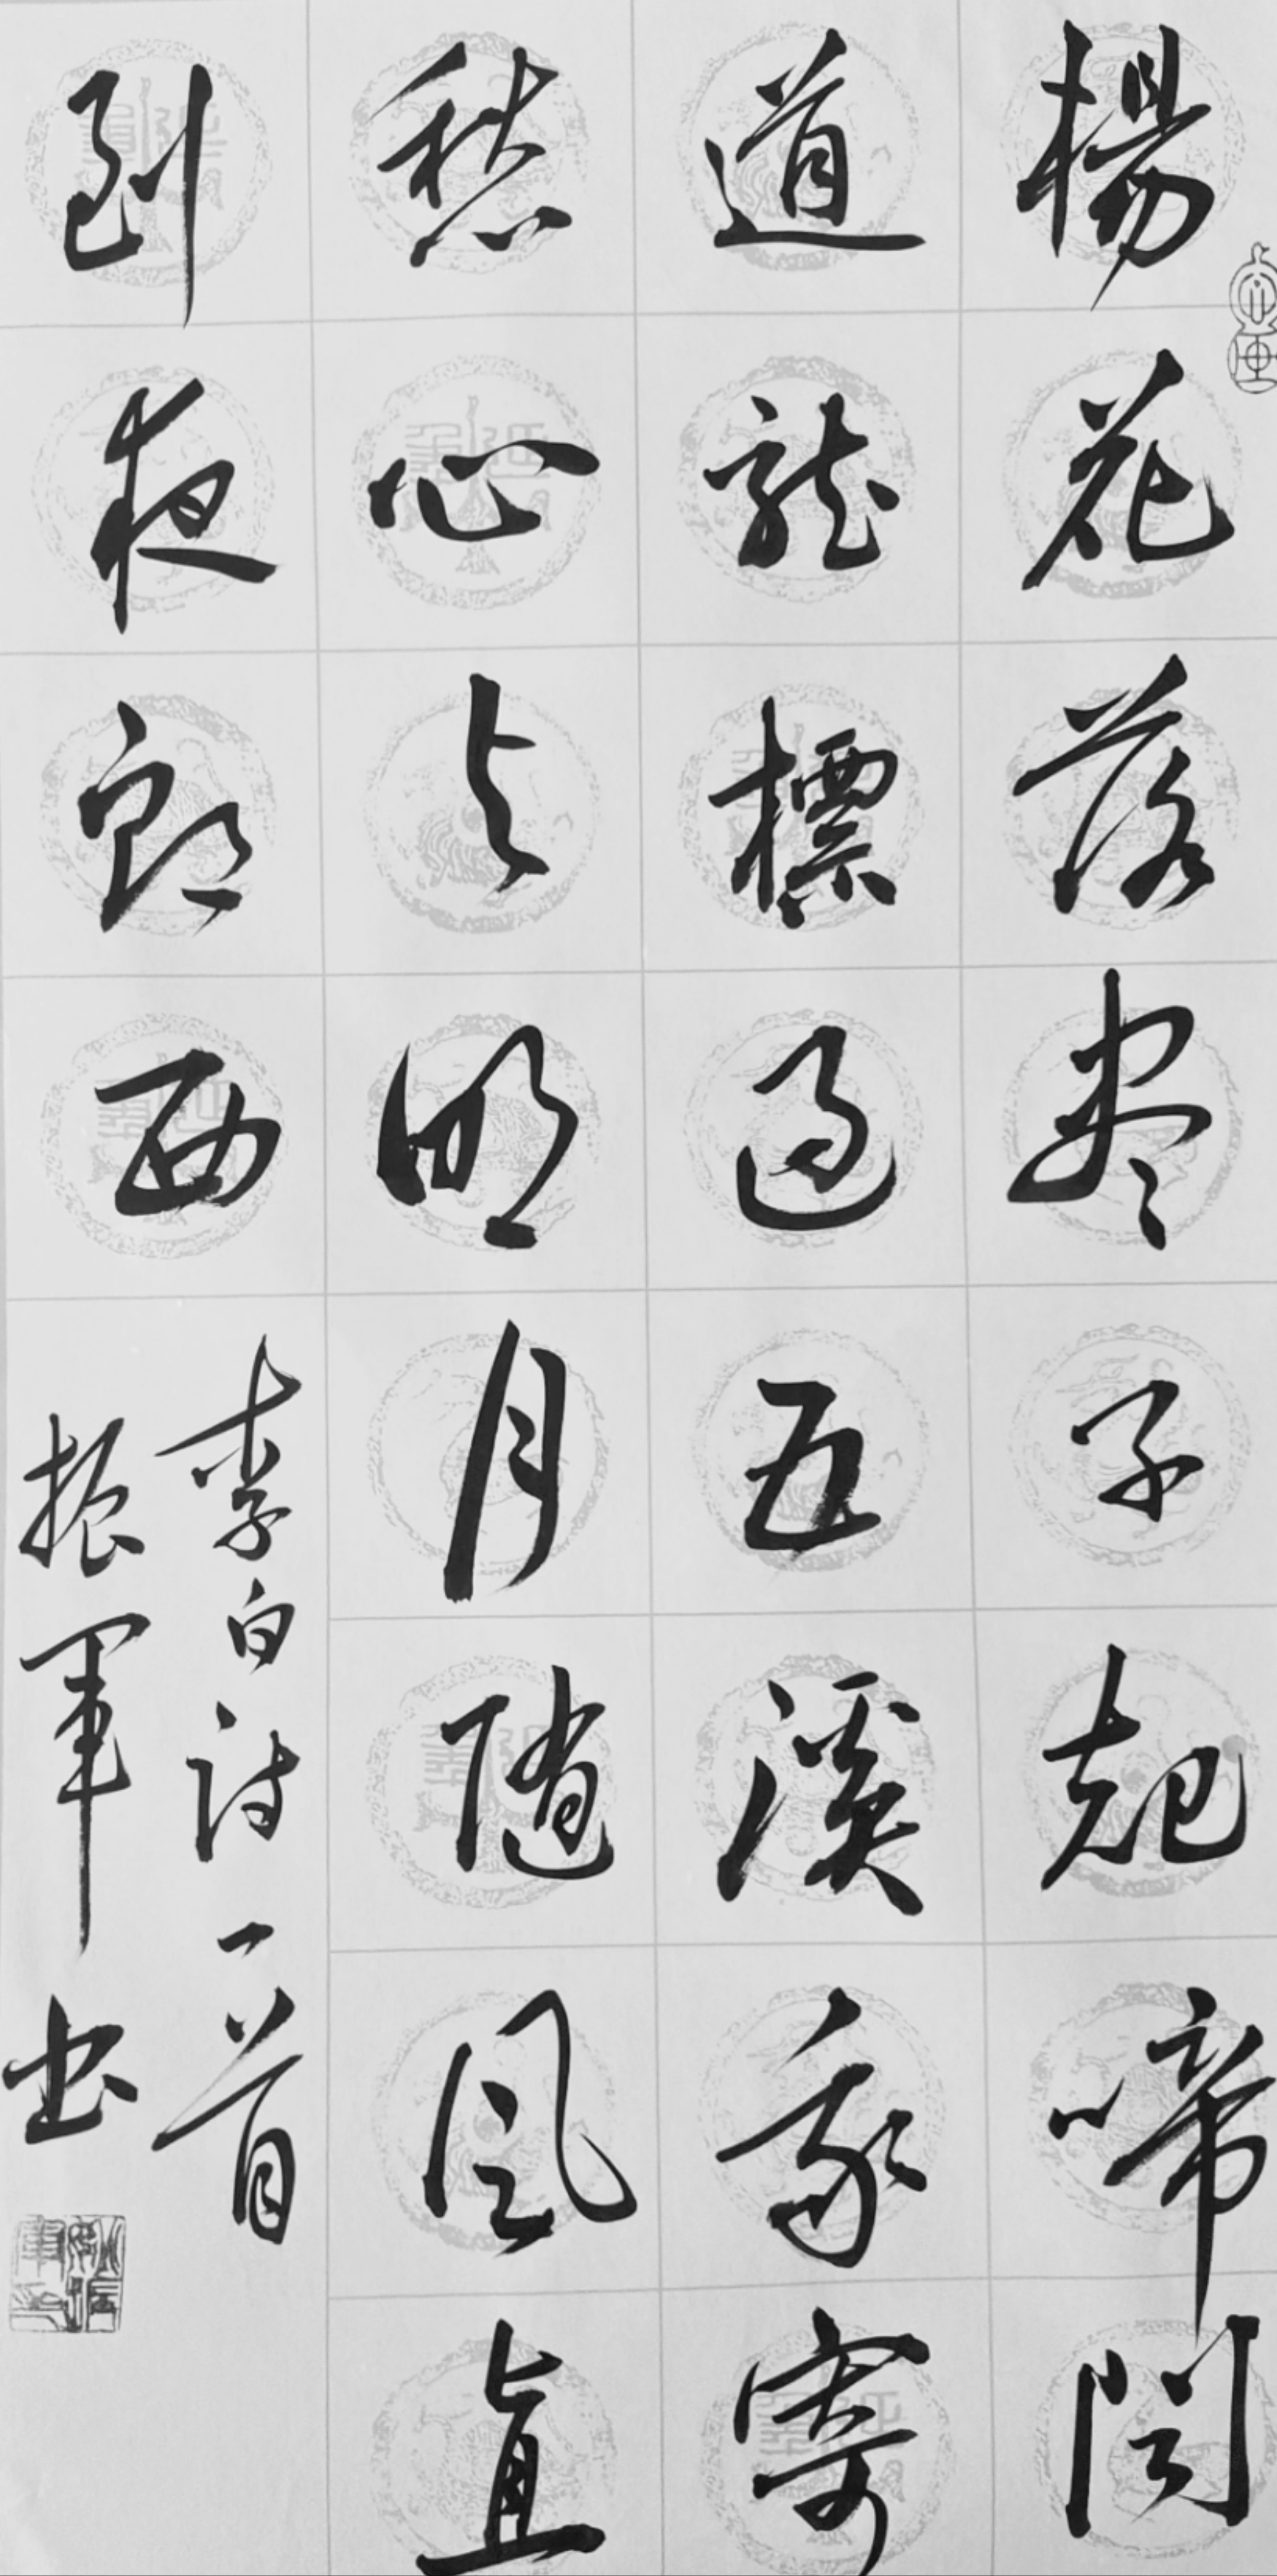 楊花落盡子規啼聞
道龍標過五溪我寄
愁心与明月隨風直
到夜郎西
李白詩一首
振軍書